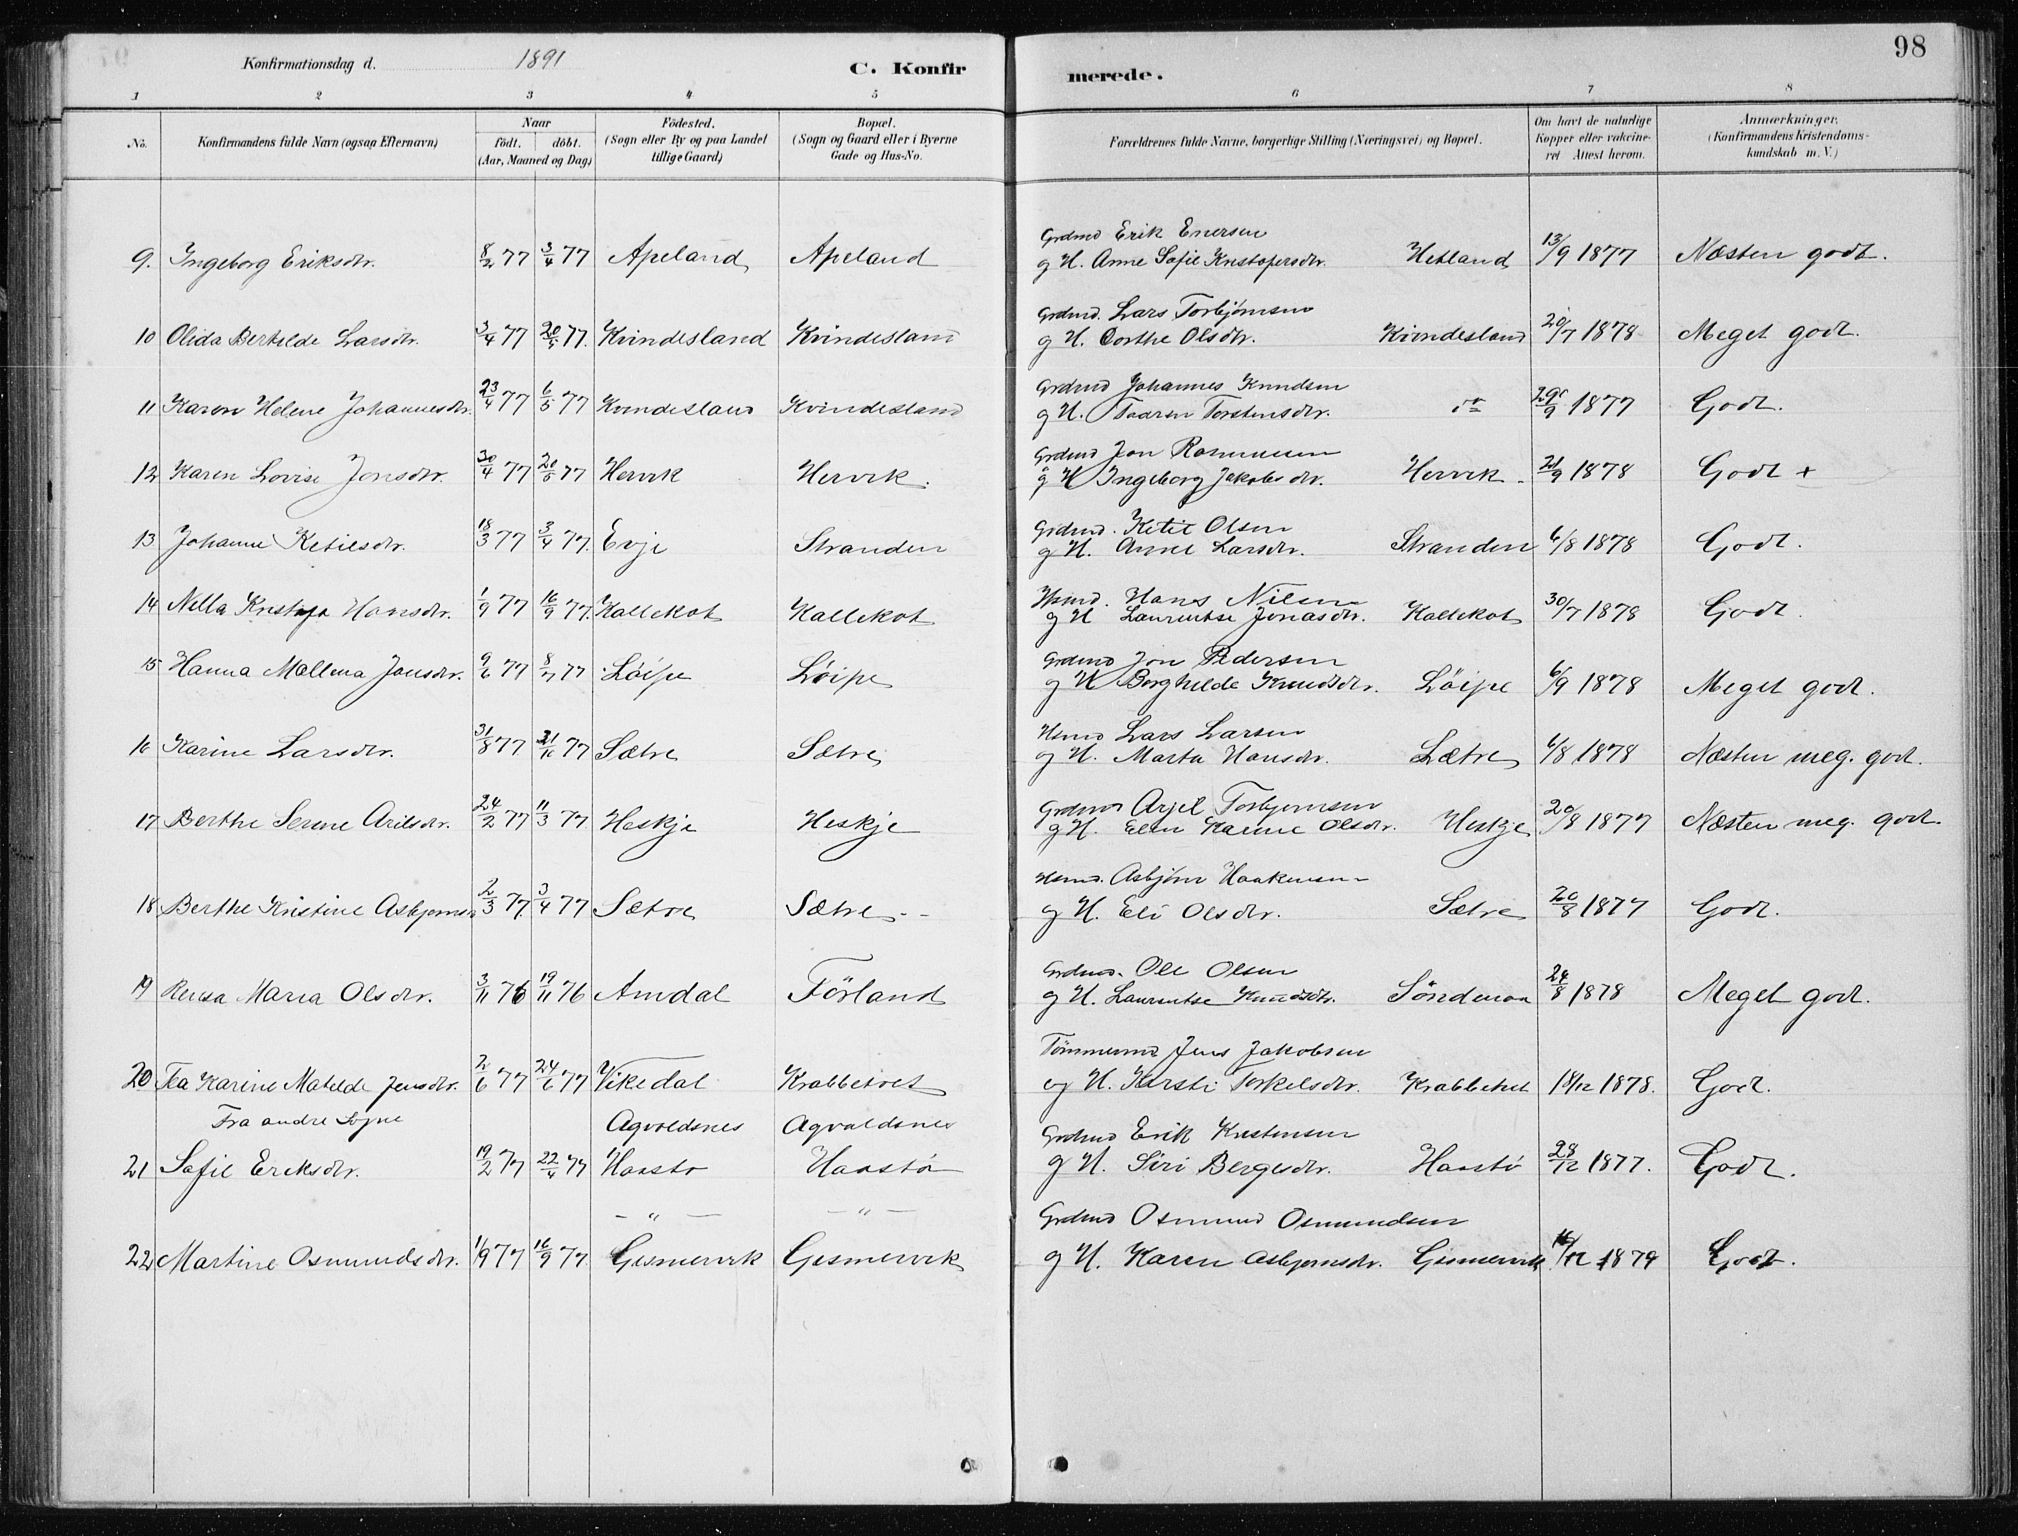 98
Konfirmationsdag d. 1891 C. Konfirmerede.
1 2 3 4 5 6 7 8
No. Konfirmandens fulde Navn (ogsaa Efternavn) Naar født. døbt. (Aar, Maaned og Dag) Fødested. (Sogn eller By og paa Landet tillige Gaard) Bopæl. (Sogn og Gaard eller i Byerne Gade og Hus-No. Forældrenes fulde Navne, borgerlige Stilling (Næringsvei) og Bopæl. Om havt de naturlige Kopper eller vakcineret Attest herom. Anmærkninger. (Konfirmandens Kristendomskundskab m. V.)
Grdmd Erik Enersen
9. Ingeborg Eriksdtr. 8/2 77 3/4 77 Apeland Apeland g H. Anne Sofie Kristofersdtr. Hetland 13/9 1877 Næsten godt.
Grdmd. Lars Torbjørnsen
10 Olida Bertilde Larsdtr. 3/4 77 20/4 77. Kvindesland Kvindesland g H. Dorthe Olsdtr. Kvindesland 20/7 1878 Meget godt.
Grdmd Johannes Knudsen
11 Karen Helene Johannesdtr. 23/4 77 6/5 77 Kvindesland Kvindesland g H. Taaren Torstensdtr. do 1877 Godt.
Grdmd Jon Rasmussen
12 Karen Lovise Jonsdtr. 30/4 77 20/5 77 Hervik Hervik. g H Ingeborg Jakobsdtr. Hervik 21/9 1878 Godt +
Grdmd. Ketil Olsen
13 Johanne Ketilsdtr. 18/3 77 3/4 77. Evje Stranden g H. Anne Larsdtr. Stranden 6/8 1878 Godt.
Hsmd. Hans Nilsen
14 Nella Kristofa Hansdtr. 1/9 77 16/9 77. Kallekot Kallekot g H Laurentse Jonasdtr. Kallekot 30/7 1878 Godt.
Grdmd Jon Pedersen
15 Hanna Mallena Jonsdtr. 9/6 77 8/7 77 Løipe Løipe g H Borghilde Knudsdtr. Løipe 6/9 1878 Meget godt.
Hsmd Lars Larsen
16 Karine Larsdtr. 31/8 77 21/10 77 Sætre Sætre g H. Marta Hansdtr. Sætre 6/8 1878 Næsten meg. godt.
Grdmd Arjel Torbjørnsen
17 Berthe Serine Arilsdtr. 24/2 77 11/3 77 Heskje Heskje g H. Elen Karine Olsdtr. Heskje 20/8 1877 Næsten meg. godt.
Hsmd. Asbjørn Haakensen
18 Berthe Kristine Asbjørnsd 2/3 77. 3/4 77 Sætre Sætre g H. Eli Olsdtr. Sætre 20/8 1877 Godt.
Grdmd. Ole Olsen
19 Maria Olsdtr. 3/11 76 19/11 76 Amdal Førland g H. Laurentse Knudsdtr. Søndenaa 24/8 1878 Meget godt.
Tømmermd Jens Jakobsen
20 Tea Karine Matilde Jensdtr. 2/6 77 24/6 77 Vikedal Krabbetvet og H. Kirsti Torkelsdtr. Krabbetvet 18/12 1878. Godt.
Fra andre Sogne Agvaldsnes Agvaldsnes
Grdmd Erik Kristensen
21 Sofie Eriksdtr. 19/2 77 22/4 77 Haastø Haastø g H. Siri Bergesdtr. Haastø 28/12 1877. Godt.
— " — — " —
Grdmd Osmund Osmundsen
22 Martine Osmundsdtr. 1/9 77 16/9 77. Gismervik Gismervik g H. Karen Asbjørnsdtr. Gismervik 16/12 1879 Godt.